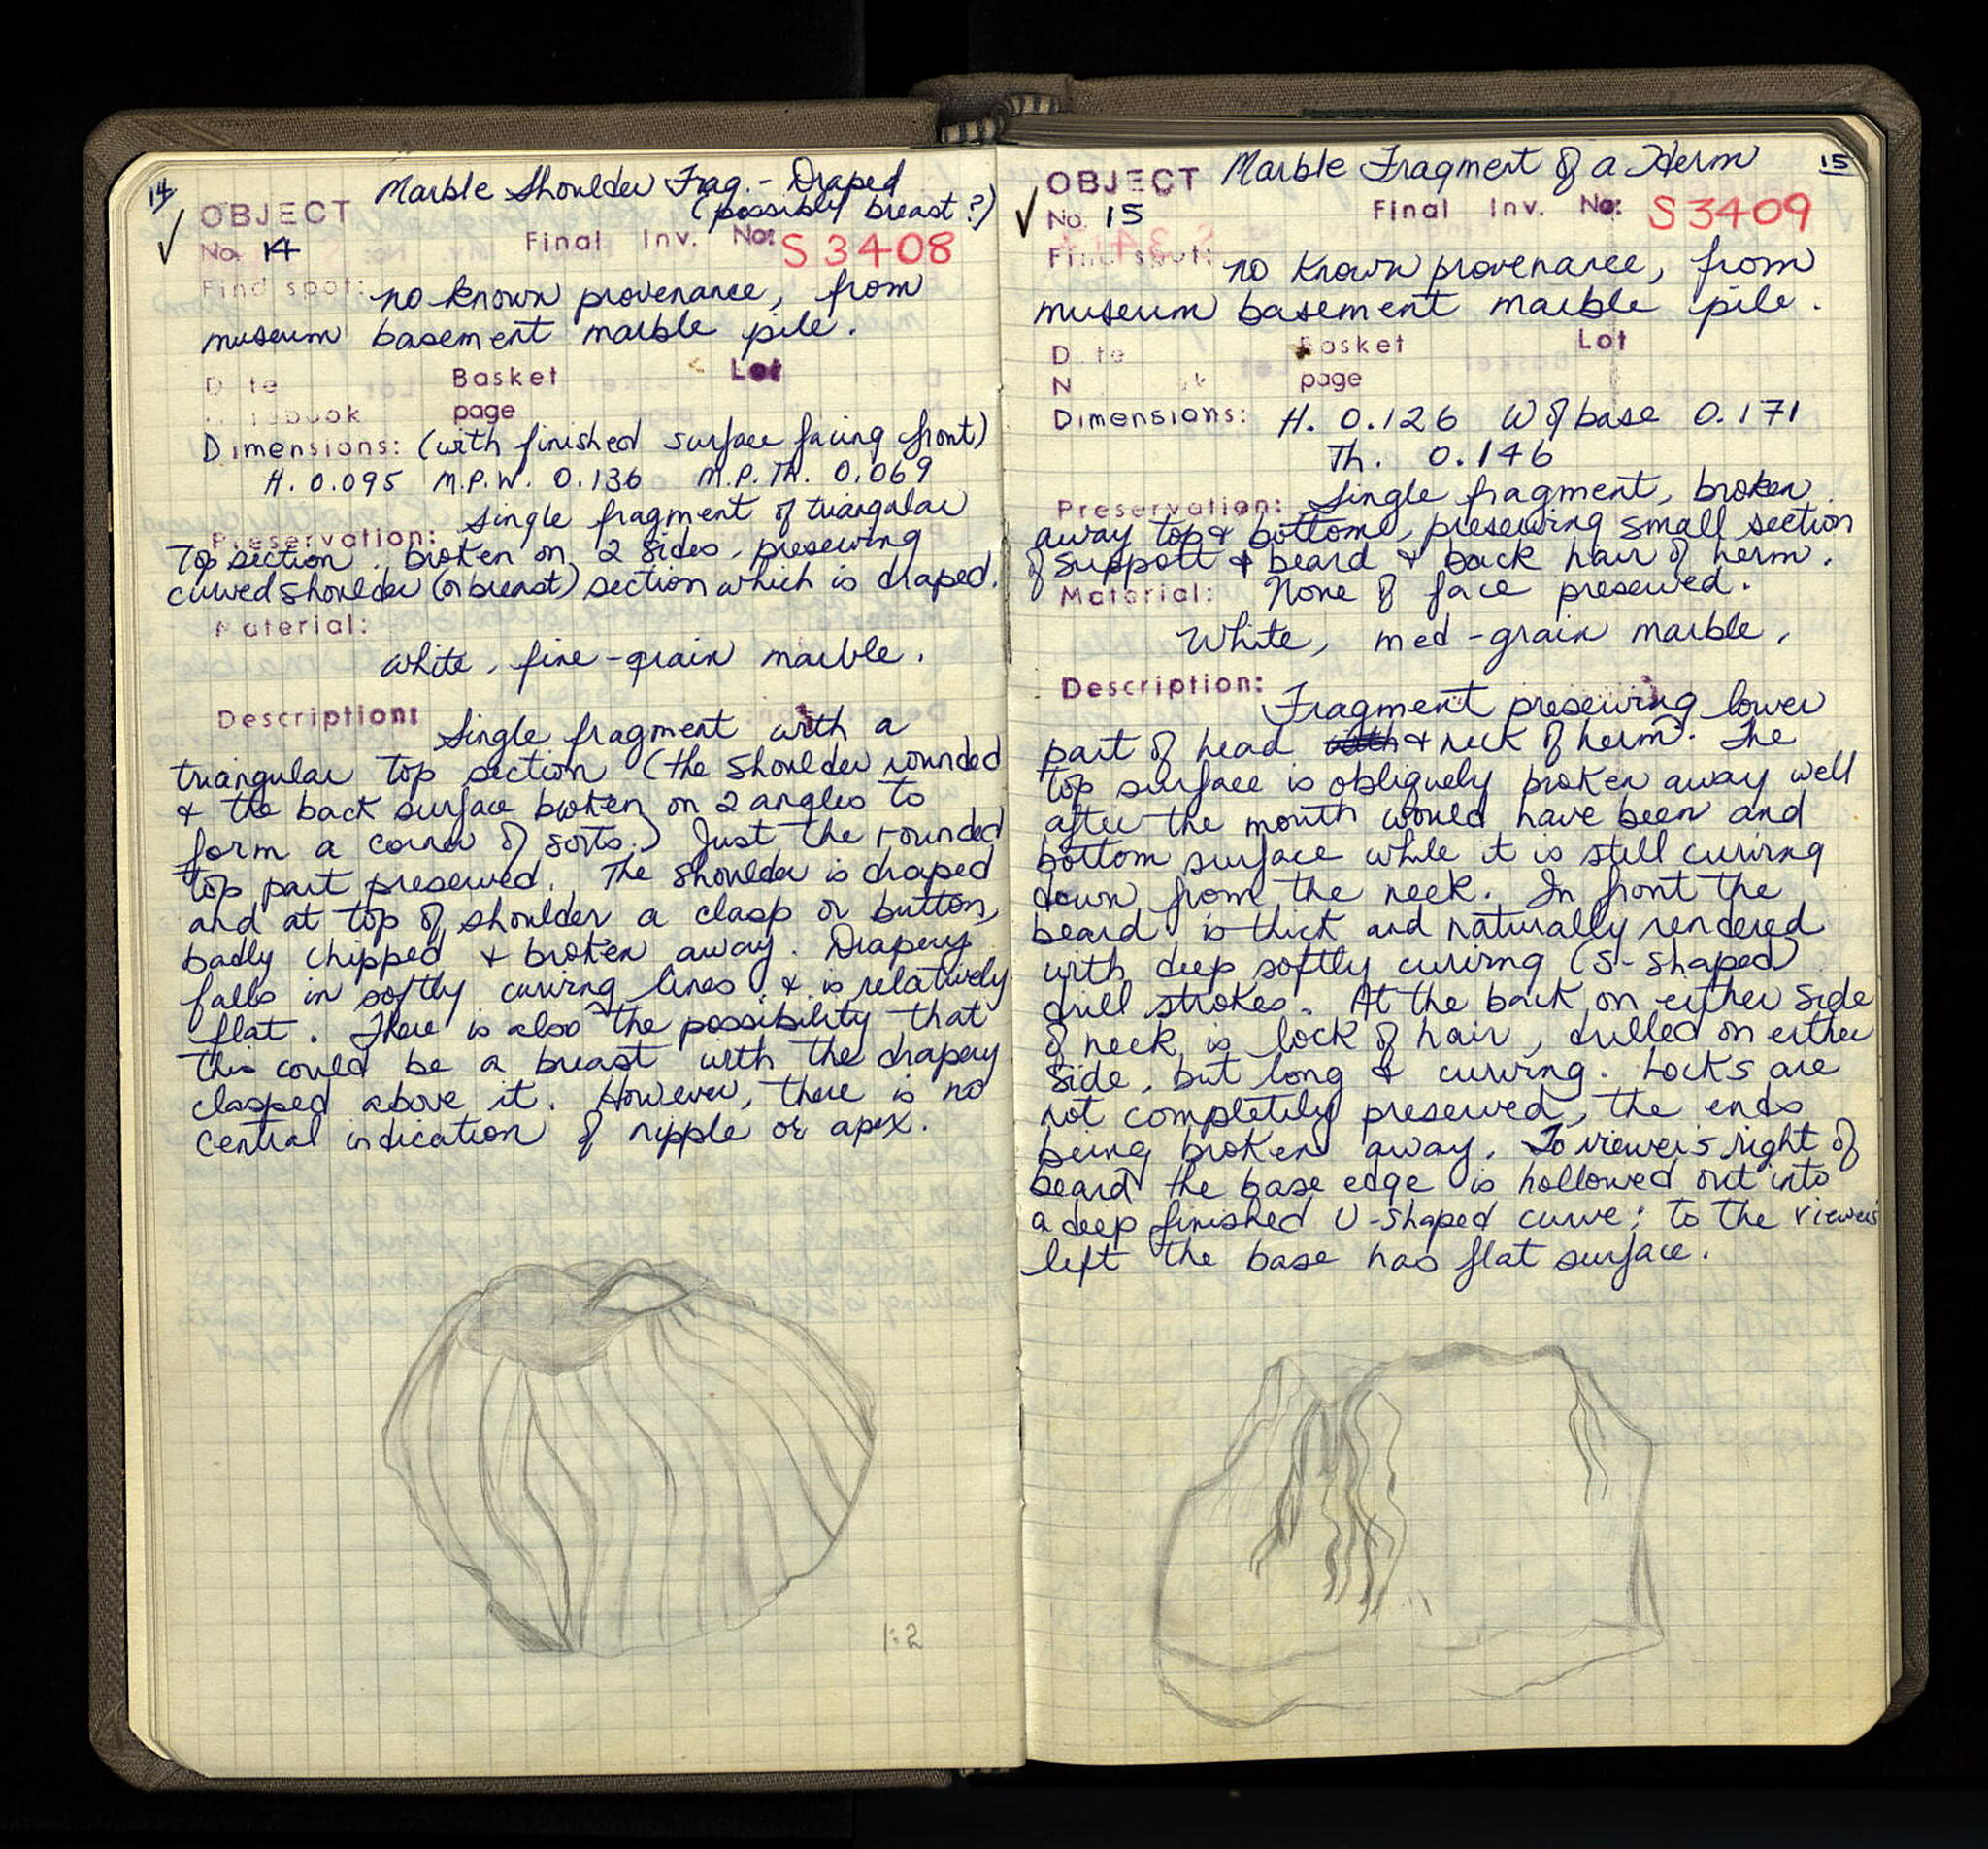 14
Marble Shoulder Frag. - Draped
(possibly breast?)
OBJECT
No. 14 Final Inv. No: S 3408
Find spot: no known provenance, from
museum basement marble pile.
Date Basket Lot
Notebook page
Dimensions: (with finished surface facing front)
H. 0.095 M.P.W. 0.136 M.P.Th. 0.069
Preservation: Single fragment of triangular
top section, broken on 2 sides, preserving
curved shoulder (or breast) section which is draped.
Material:
white, fine-grain marble.
Description: Single fragment with a
triangular top section (the shoulder rounded
& the back surface broken on 2 angles to
form a corner of sorts.) Just the rounded
top part preserved. The shoulder is draped
and at top of shoulder a clasp or button,
badly chipped & broken away. Drapery
falls in softly curving lines & is relatively
flat. There is also the possibility that
this could be a breast with the drapery
clasped above it. However, there is no
central indication of nipple or apex.
1:2
15
OBJECT Marble Fragment of a Herm
No. 15 Final Inv. No: S 3409
Find spot: no known provenance, from
museum basement marble pile.
Date Basket Lot
N k page
Dimensions: H. 0.126 W of base 0.171
Th. 0.146
Preservation: Single fragment, broken
away top & bottome, preserving small section
of support & beard & back hair of herm.
Material: None of face preserved.
White, med-grain marble.
Description: Fragment preserving lower
part of head & neck of herm. The
top surface is obliquely broken away well
after the mouth would have been and
bottom surface while it is still curving
down from the neck. In front the
beard is thick and naturally rendered
with deep softly curving (S-shaped)
drill strokes. At the back on either side
of neck is lock of hair, drilled on either
side, but long & curving. Locks are
not completely preserved, the ends
being broken away. To viewer's right of
beard the base edge is hollowed out into
a deep finished U-shaped curve; to the viewers
left the base has flat surface.